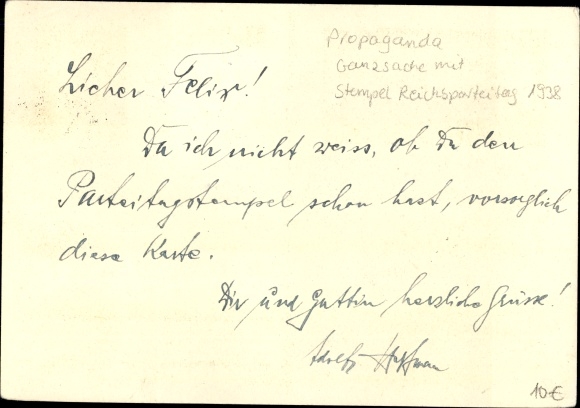 Propaganda
Ganzsache mit
Stempel Reichsparteitag 1938
Lieber Felix!
Da ich nicht weiss, ob Du den
Parteitagstempel schon hast, vorsorglich
diese Karte.
Dir und Gattin herzliche Grüsse!
Adolf
10€